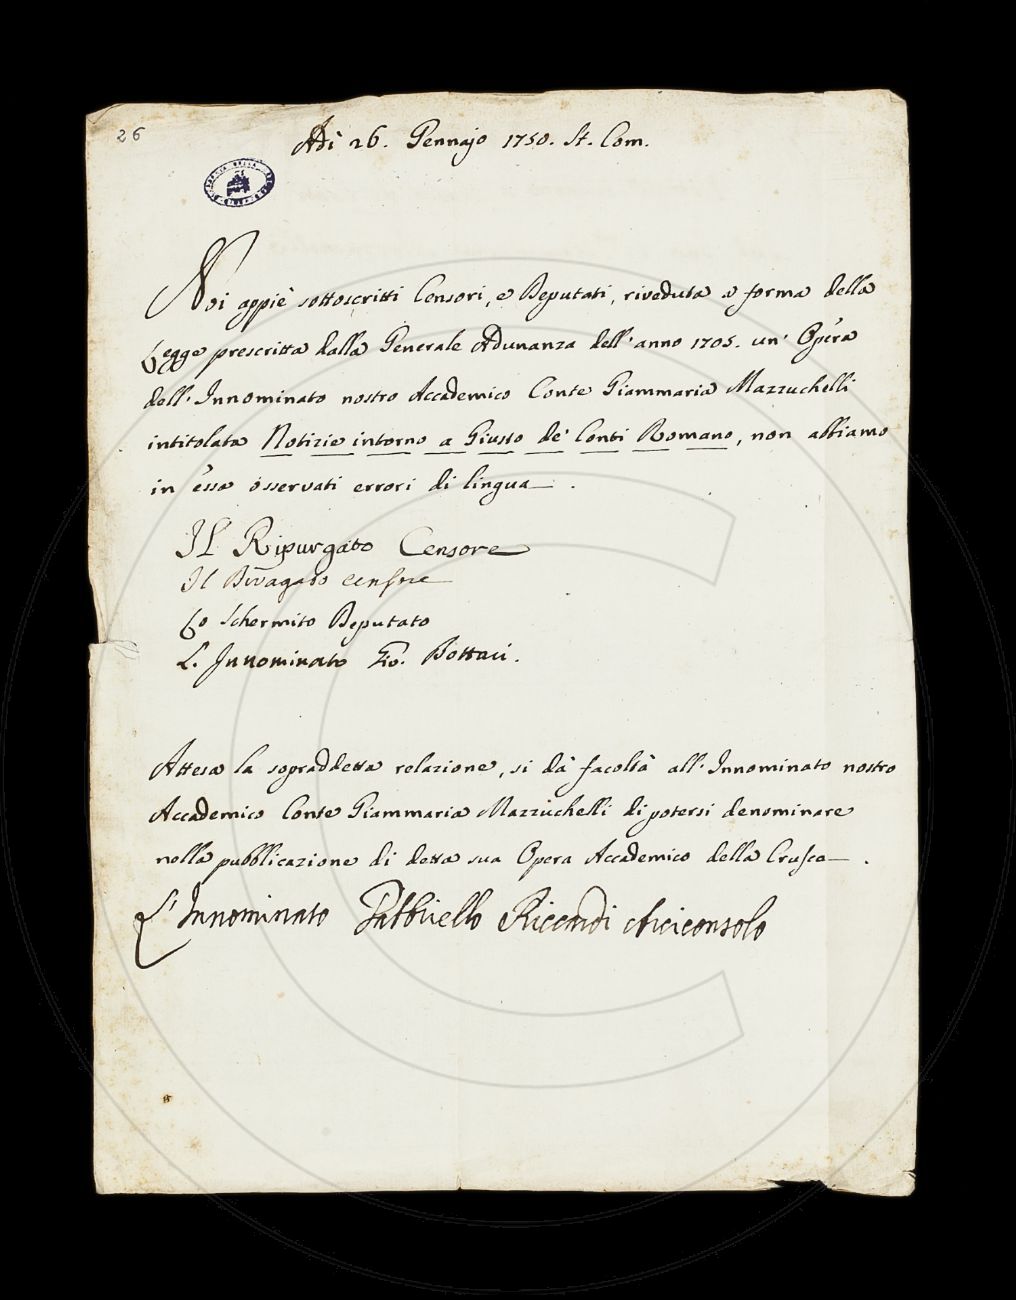 26
Adì 26. Gennajo 1750. St. Com.
Noi appiè sottoscritti Censori, e Deputati, riveduta a forma della
Legge prescritta dalla Generale Adunanza dell'anno 1705. un' Opera
dell'Innominato nostro Accademico Conte Giammaria Mazzuchelli
intitolata Notizie intorno a Giusto de' Conti Romano, non abbiamo
in essa osservati errori di lingua.
Il Ripurgato Censore
Il Divagato Censore
Lo Schermito Deputato
L'Innominato Gio. Bottari.
Attesa la sopraddetta relazione, si dà facoltà all'Innominato nostro
Accademico Conte Giammaria Mazzuchelli di potersi denominare
nella pubblicazione di detta sua Opera Accademico della Crusca.
L'Innominato Gabbriello Riccardi Arciconsolo